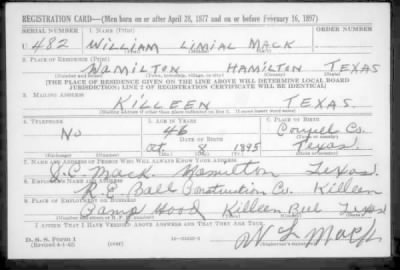 REGISTRATION CARD—(Men born on or after April 28, 1877 and on or before February 16, 1897)
SERIAL NUMBER 1. NAME (Print) ORDER NUMBER
U 482 WILLIAM LIMIAL MACK
2. PLACE OF RESIDENCE (Print)
HAMILTON HAMILTON TEXAS
(Number and street) (Town, township, village, or city) (County) (State)
[THE PLACE OF RESIDENCE GIVEN ON THE LINE ABOVE WILL DETERMINE LOCAL BOARD
JURISDICTION; LINE 2 OF REGISTRATION CERTIFICATE WILL BE IDENTICAL]
3. MAILING ADDRESS
KILLEEN TEXAS.
[Mailing address if other than place indicated on line 2. If same insert word same]
4. TELEPHONE 5. AGE IN YEARS 6. PLACE OF BIRTH
No 46 Coryell Co.
DATE OF BIRTH (Town or county)
8 1895 Texas.
(Exchange) (Number) (Mo.) (Day) (Yr.) (State or country)
7. NAME AND ADDRESS OF PERSON WHO WILL ALWAYS KNOW YOUR ADDRESS
J.C. Mack Hamilton Texas.
8. EMPLOYER'S NAME AND ADDRESS
R.E. Ball Construction Co. Killeen
9. PLACE OF EMPLOYMENT OR BUSINESS
Camp Hood Killeen Bell Texas
(Number and street or R. F. D. number) (Town) (County) (State)
I AFFIRM THAT I HAVE VERIFIED ABOVE ANSWERS AND THAT THEY ARE TRUE.
D. S. S. Form 1
(Revised 4-1-42) (over) W L Mack
(Registrant's signature)